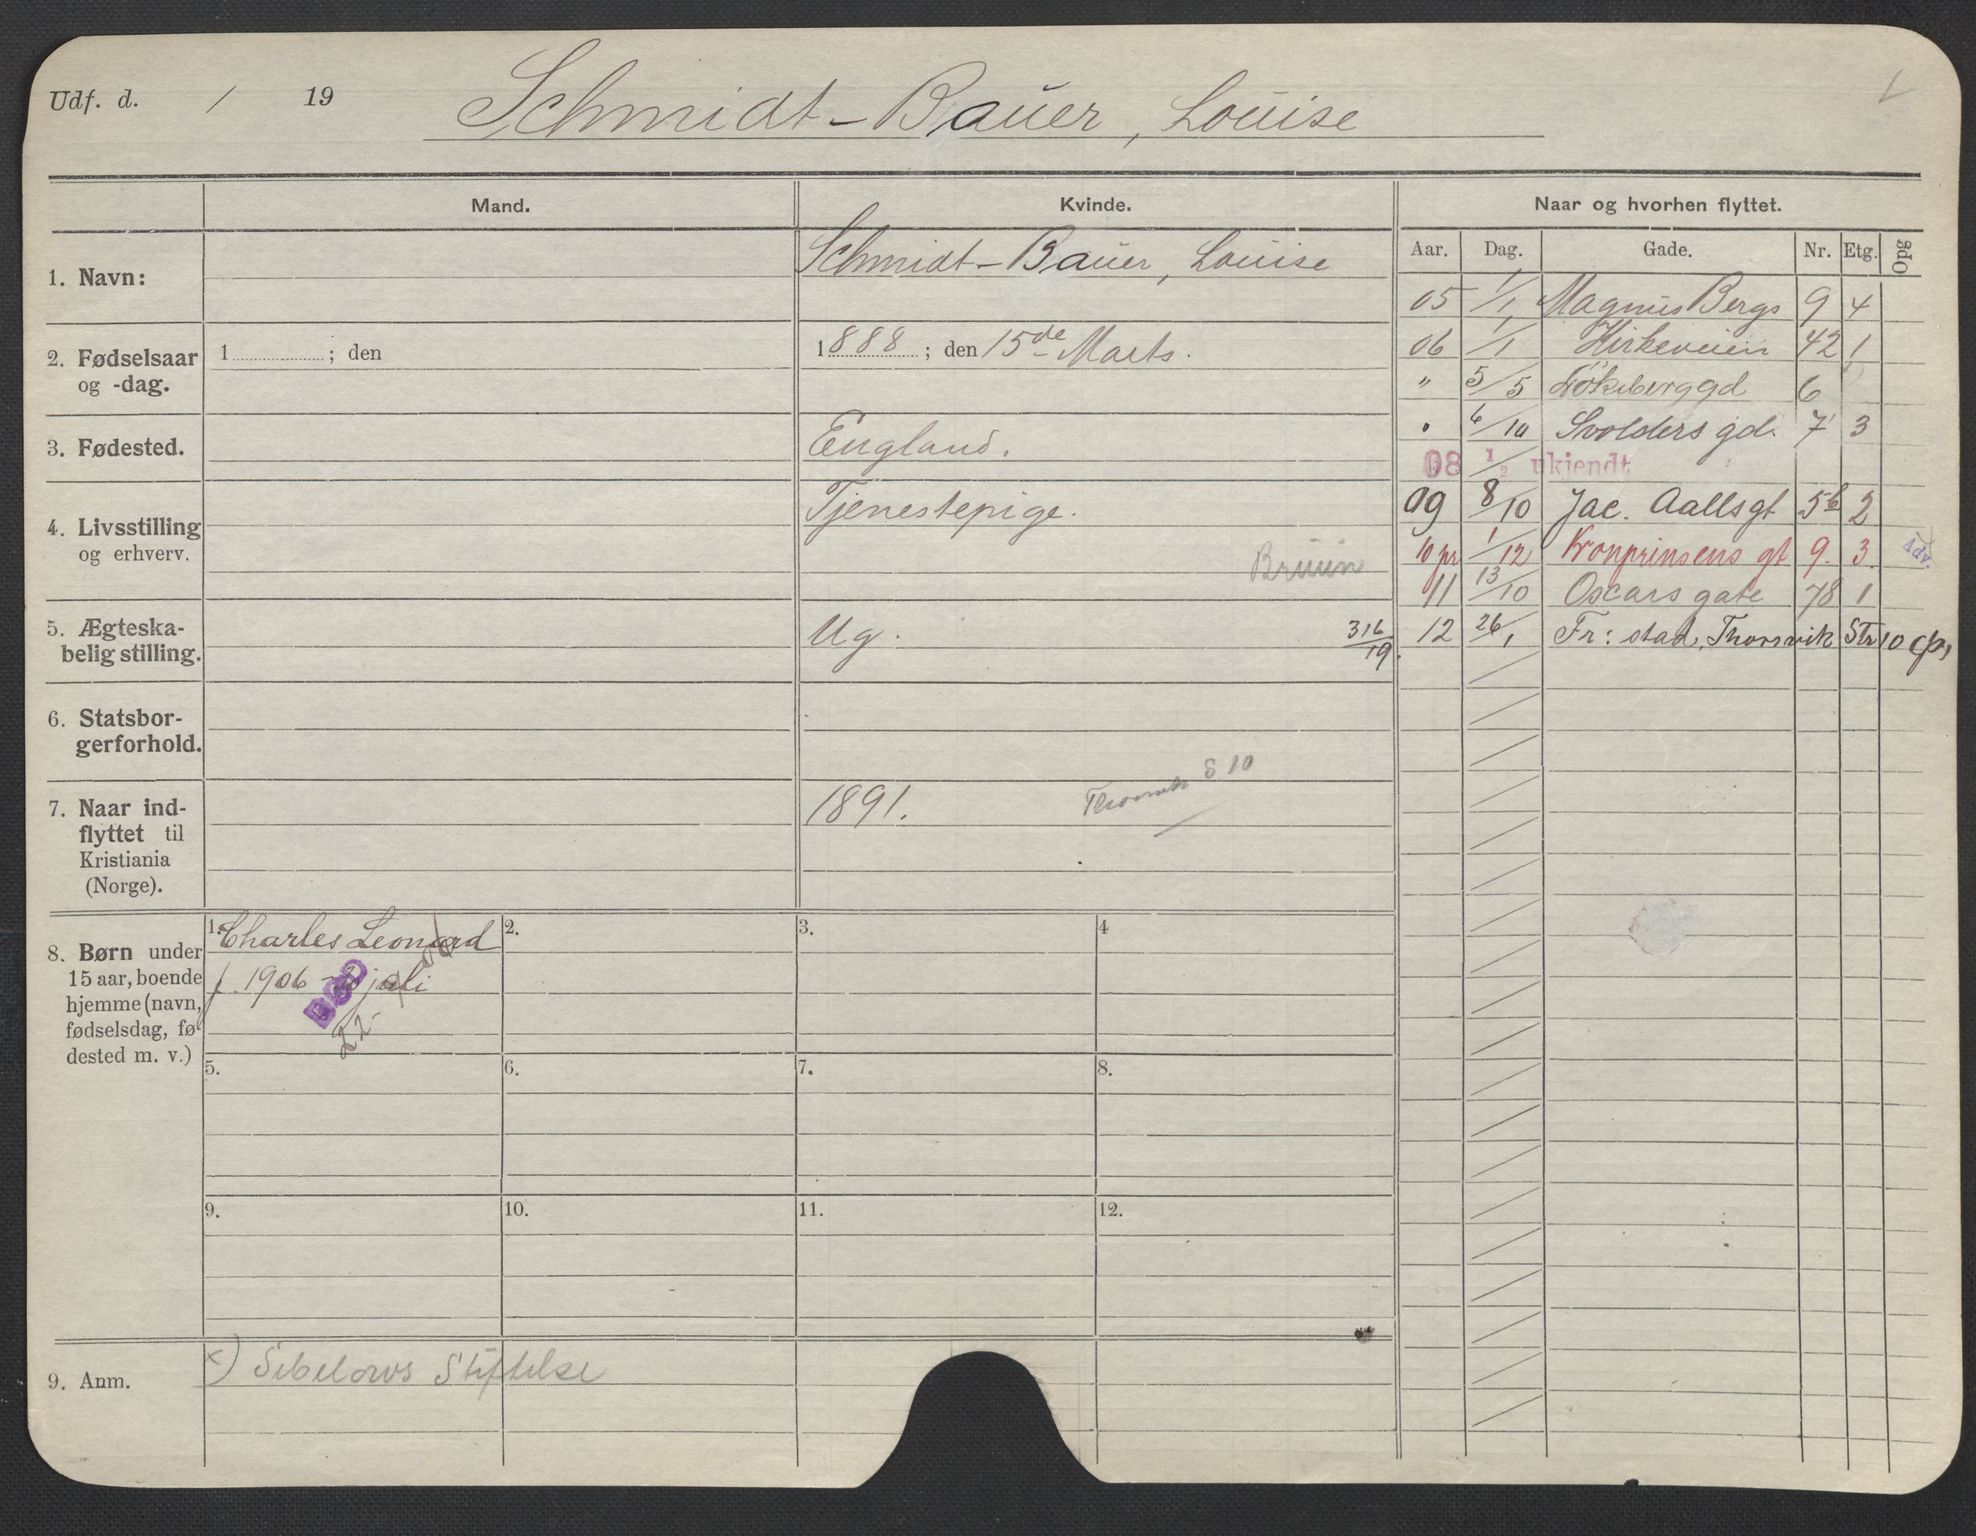 Udf. d. / 19 Schmidt-Bauer, Louise
Mand. Kvinde. Naar og hvorhen flyttet.
Aar. Dag. Gade. Nr. Etg. Opg
1. Navn: Schmidt-Bauer, Louise
05 1/1 Magnus Bergs 9 4
2. Fødselsaar og -dag. 1 ; den
1888 ; den 15de Marts.
06 1/1 Kirkeveien 42 1
" 5/5 Løkeberggd 6
3. Fødested. England.
" 6/10 Svolders gd. 7 3
08 1/2 ukjendt
4. Livsstilling og erhverv. Tjenestepige.
Bruun
09 8/10 Jac. Aallsgt 5b 2
10 pr 1/12 Kronprinsens gt 9. 3. Adv.
11 13/10 Oscars gate 78 1
5. Ægteska-
belig stilling. Ug. 316/19.
12 26/1 Fr:stad, Thorsvik Str 10
6. Statsbor-
gerforhold.
7. Naar ind-
flyttet til
Kristiania
(Norge).
1891. S 10
8. Børn under
15 aar, boende
hjemme (navn,
fødselsdag, fø-
dested m. v.)
1. Charles Leonard 2. 3. 4
f. 1906 juli
DØD
22-
5. 6. 7. 8.
9. 10. 11. 12.
9. Anm. x) Sebelows Stiftelse